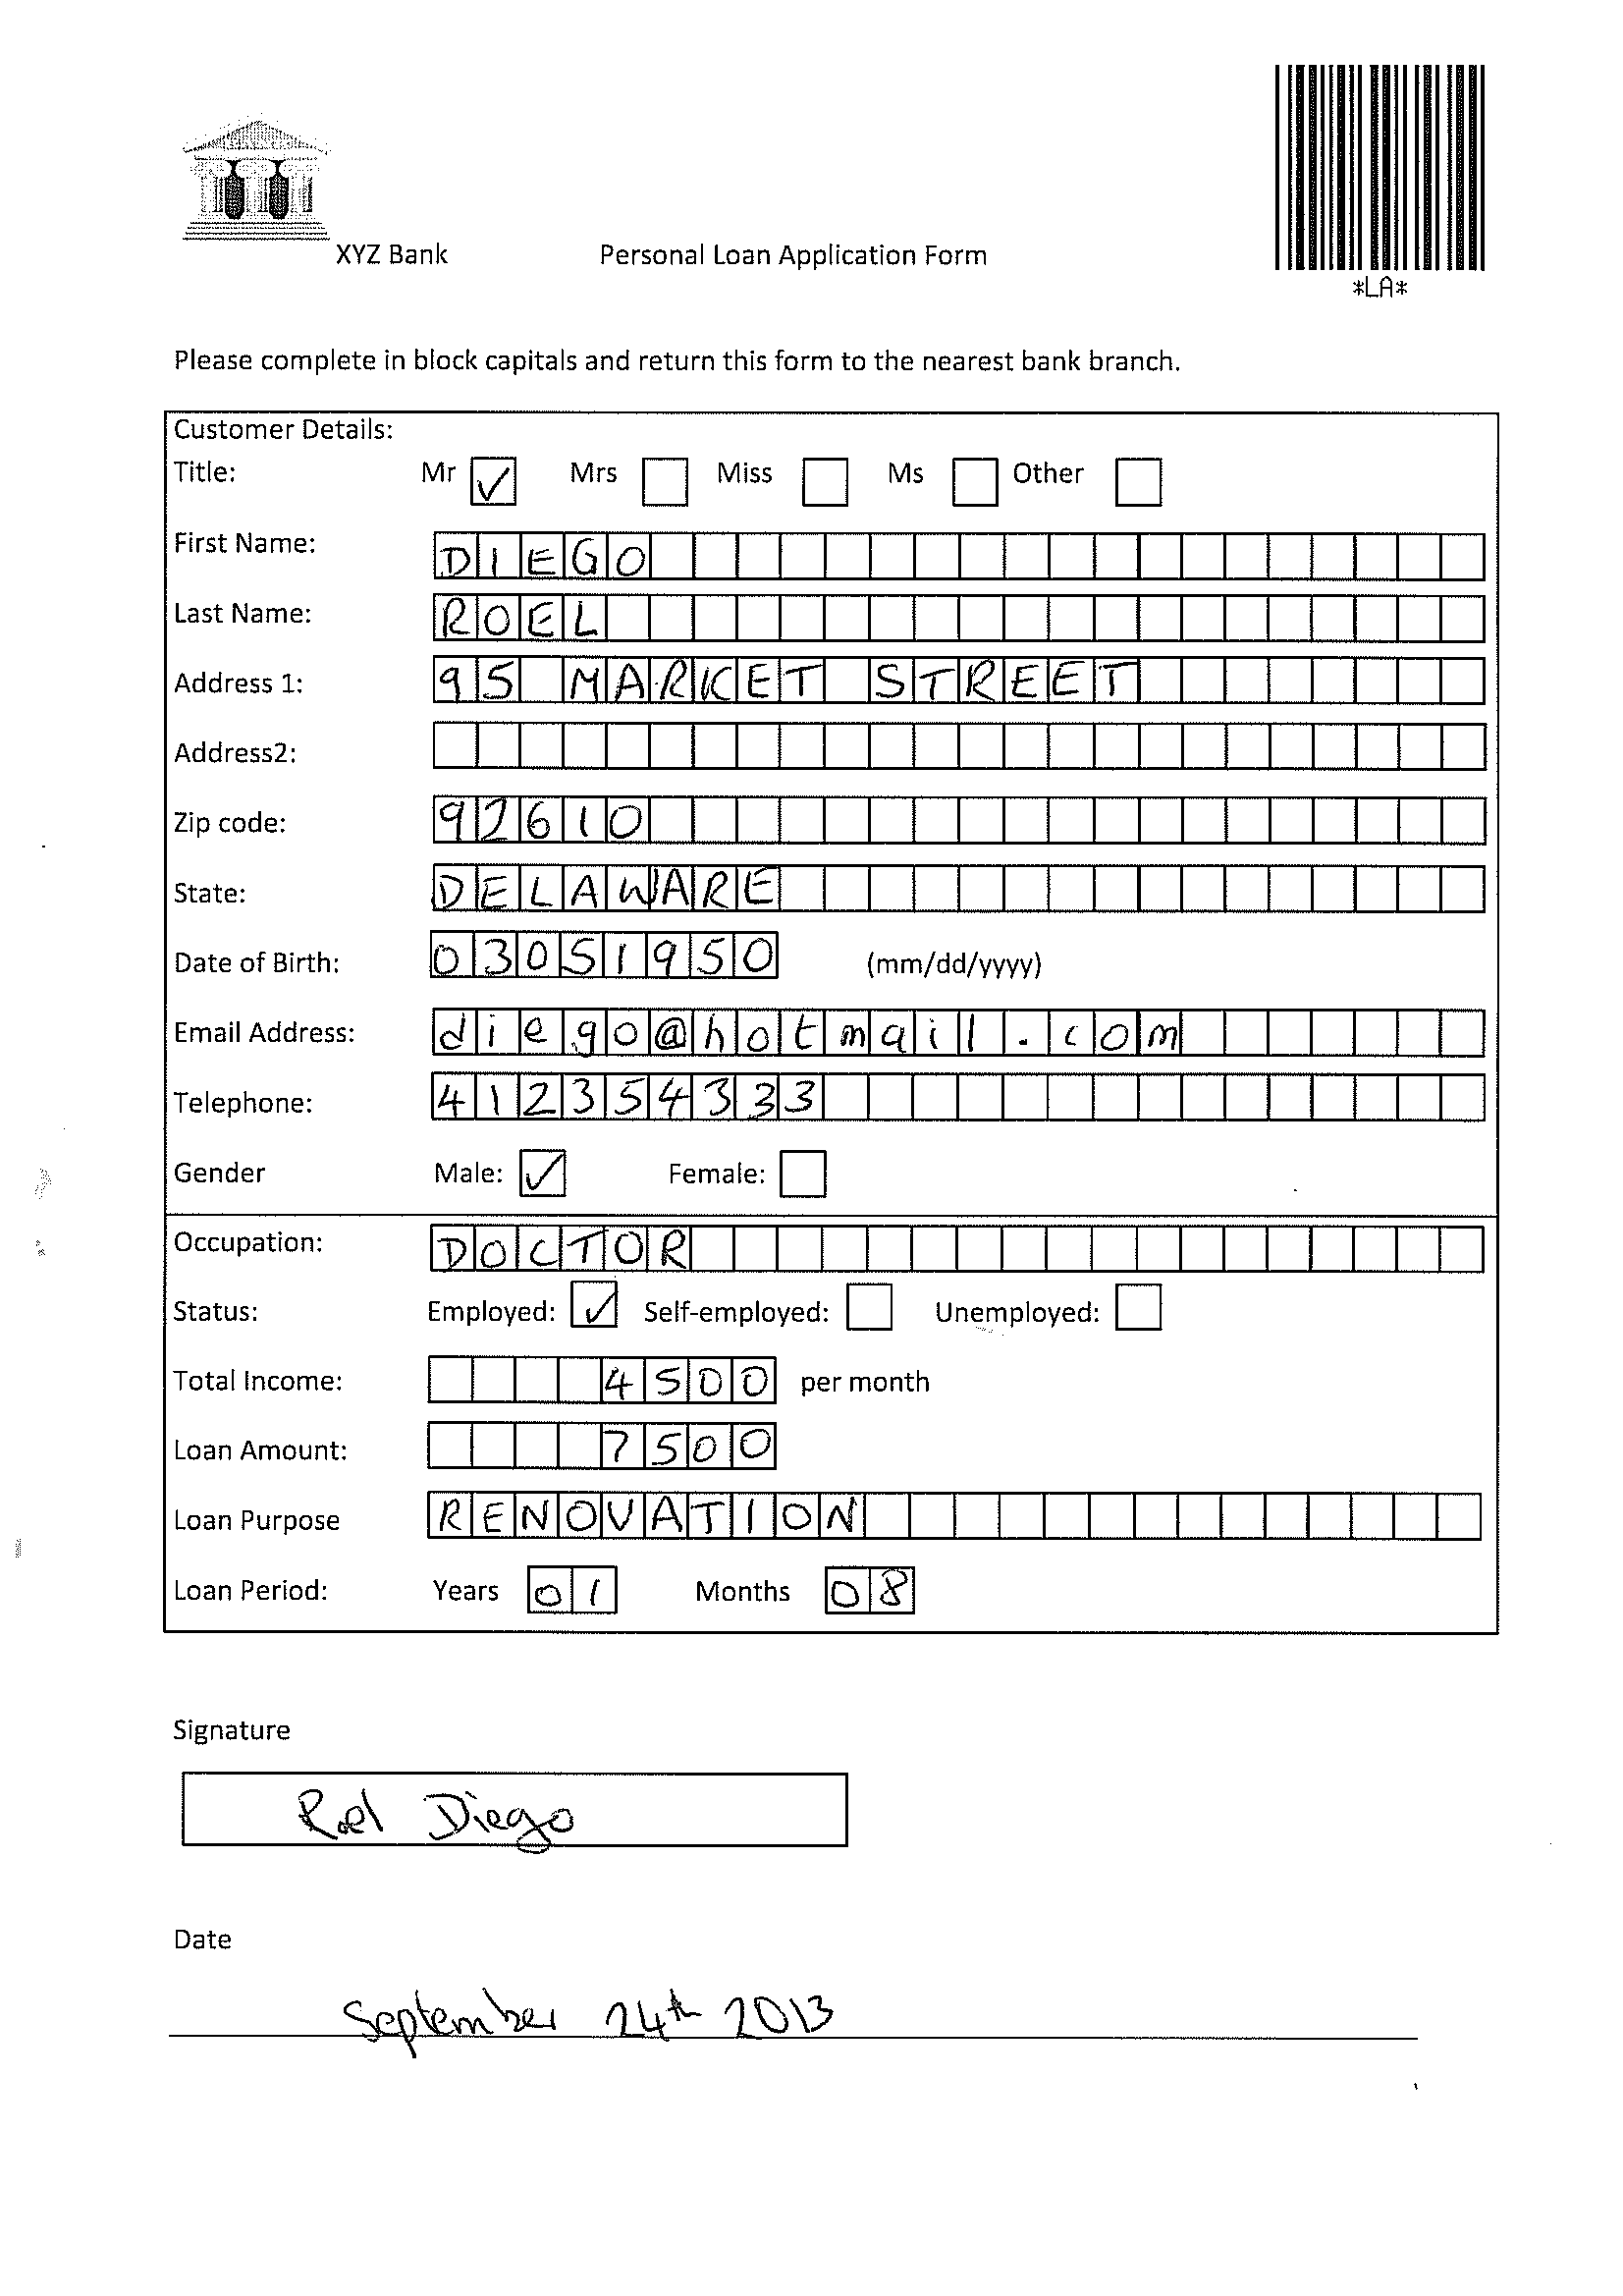 XYZ Bank Personal Loan Application Form
*LA*
Please complete in block capitals and return this form to the nearest bank branch.
Customer Details:
Title: Mr ✓ Mrs Miss Ms Other
First Name: DIEGO
Last Name: ROEL
Address 1: 95 MARKET STREET
Address2:
Zip code: 92610
State: DELAWARE
Date of Birth: 03051950 (mm/dd/yyyy)
Email Address: diego@hotmail.com
Telephone: 412354333
Gender Male: ✓ Female:
Occupation: DOCTOR
Status: Employed: ✓ Self-employed: Unemployed:
Total Income: 4500 per month
Loan Amount: 7500
Loan Purpose RENOVATION
Loan Period: Years 01 Months 08
Signature
Roel Diego
Date
September 24th 2013